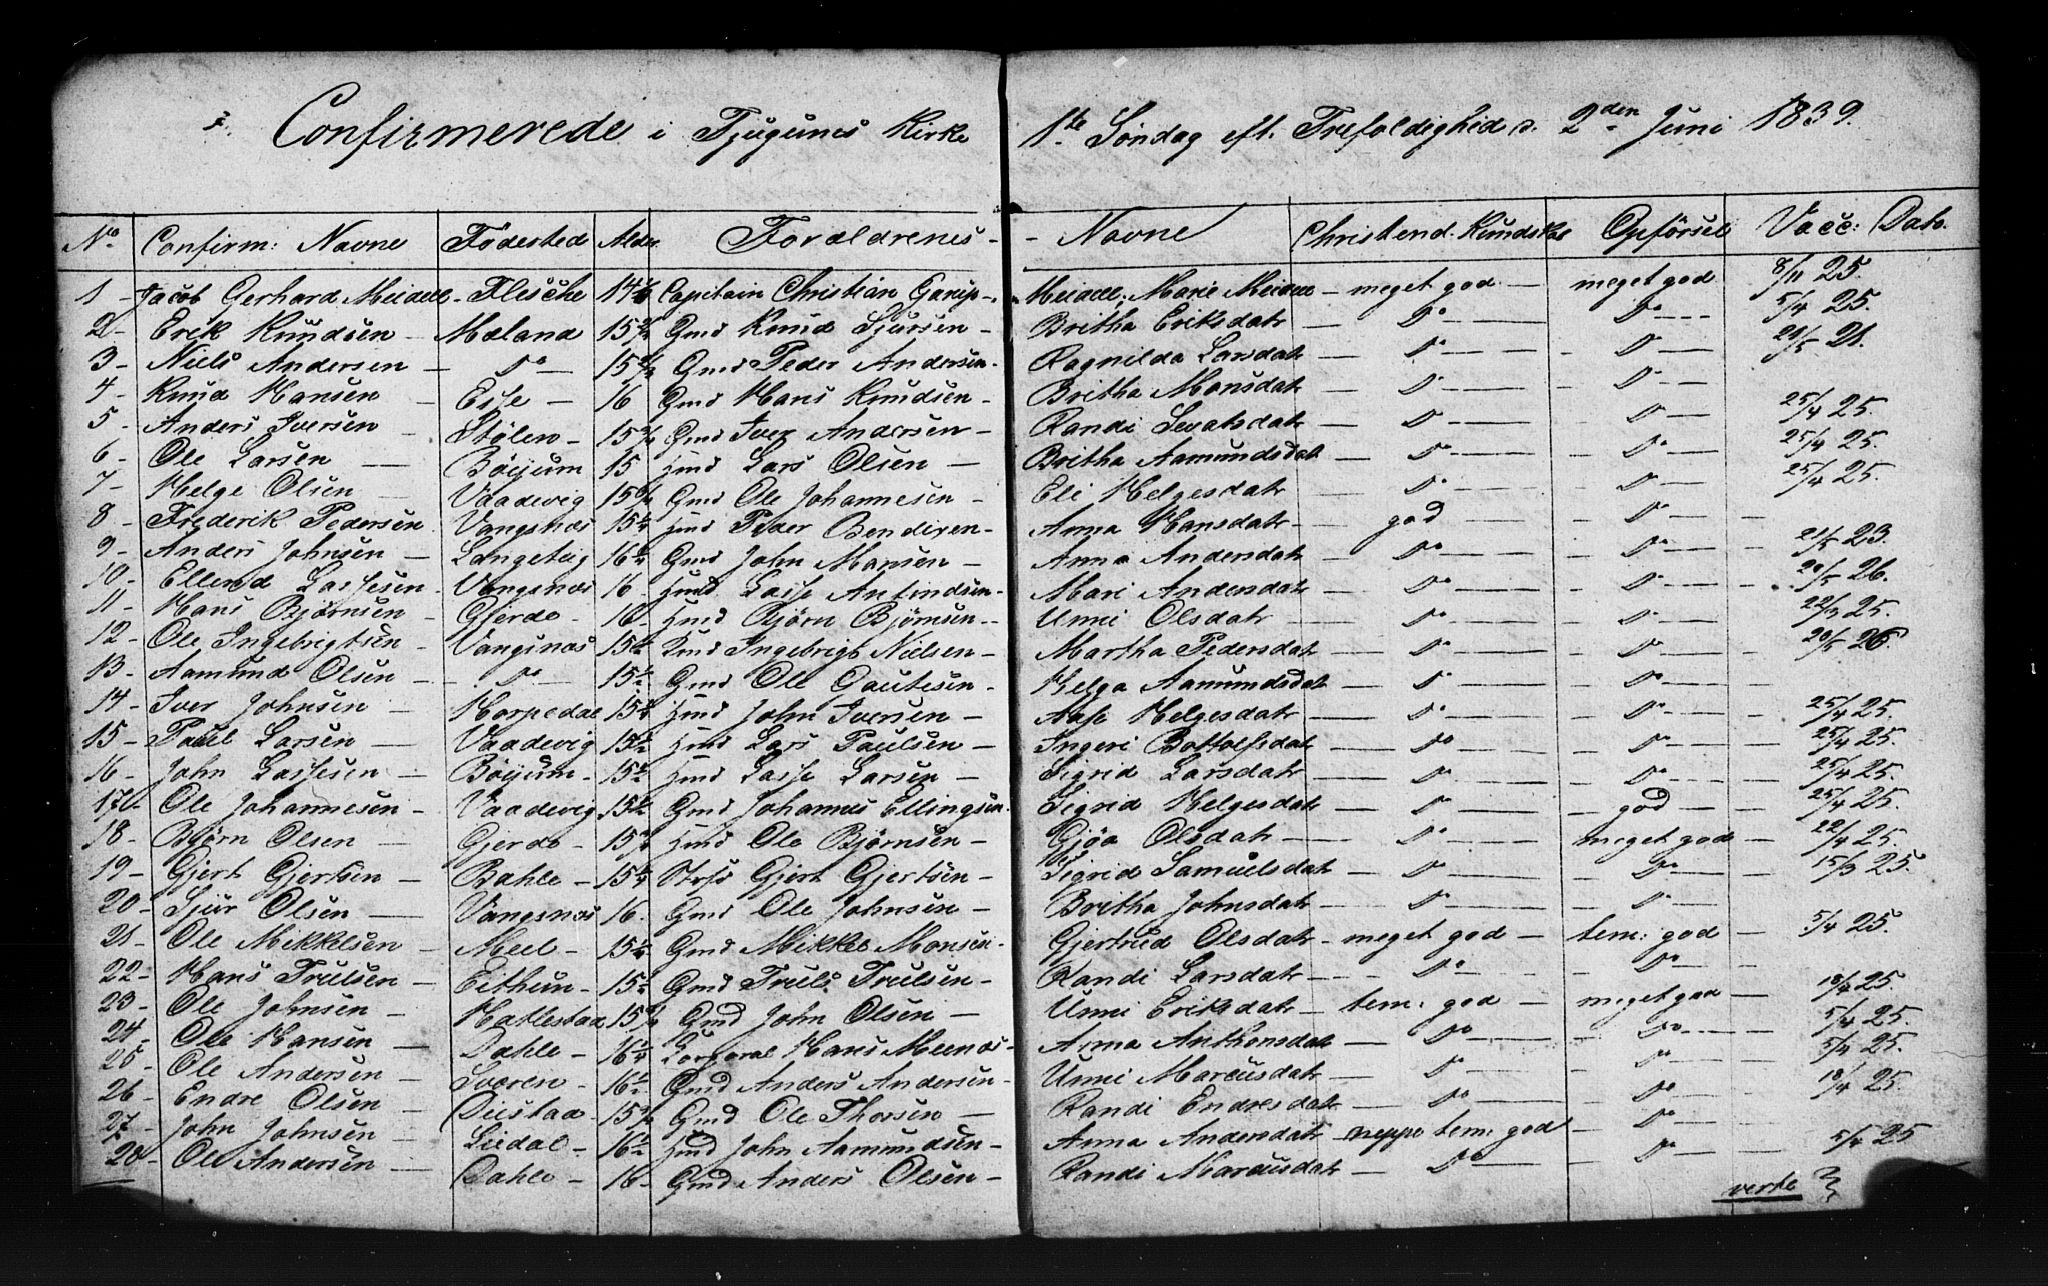 Confirmerede i Tjugums Kirke 1ste Søndag eft. Trefoldighed d. 2den Juni 1839.
No Confirm: Navne Fødested Alder Forældrenes Navne Christend. Kundskab Opførsel Vacc: Dato.
1 - Jacob Gerhard Meidell - Flesche 14 1/2 Capitain Christian Garup Meidell, Marie Meidell - meget god - meget god 8/11 25.
2 - Erik Knudsen - Mæland 15 Gmd Knud Sjursen - Britha Eriksdatr - Do - Do - 5/4 25.
3 - Niels Andersen - Do - 15 Gmd Peder Andersen - Ragnilda Larsdatr - Do - Do - 21.
4 - Knud Hansen - Esse - 16 Gmd Hans Knudsen - Britha Monsdatr - Do - Do -
5 - Anders Iversen - Stølen - 15 Gmd Iver Andersen - Randi Sevatsdatr - Do - Do - 25/4 25.
6 - Ole Larsen - Bøyum 15 Hmd Lars Olsen - Britha Aamundsdatr - Do - Do - 25/4 25.
7 - Helge Olsen - Vaadevig 15 Gmd Ole Johannesen - Eli Helgesdatr - Do - Do - 25/4 25.
8 - Frederik Pedersen Vangsnæs 15 Hmd Peder Bendixen - Anna Hansdatr - god - Do -
9 - Anders Johnsen - Langeteig 16 Gmd John Monsen - Anna Andersdatr - Do - Do - 23.
10 - Ellend Lassesen - Vangsnæs 16 Hmd Lasse Anfindsen - Mari Andersdatr - Do - Do - 20/5 26.
11 - Hans Bjørnsen - Gjerde - 16 - Hmd Bjørn Bjørnsen - Unni Olsdatr - Do - Do - 25.
12 - Ole Ingebrigtsen - Vangsnæs 15 Hmd Ingebrigt Nielsen - Martha Pedersdatr - Do - Do - 20/5 26.
13 - Aamund Olsen - Do - 15 Gmd Ole Gautesen - Helga Aamundsdatr - Do - Do -
14 - Iver Johnsen - Horpedal 15 Hmd John Iversen - Aase Helgesdatr - Do - Do - 25/4 25.
15 - Paul Larsen - Vaadevig 15 Hmd Lars Paulsen - Ingeri Bottolfsdatr - Do - Do - 25/4 25.
16 - John Lassesen - Bøyum - 15 Hmd Lasse Larsen - Sigrid Larsdatr - Do - Do - 25/4 25.
17 - Ole Johannesen - Vaadevig 15 Gmd Johannes Ellingsen - Sigrid Helgesdatr - Do - god - 25/4 25.
18 - Bjørn Olsen - Gjerde - 15 Hmd Ole Bjørnsen - Gjøa Olsdatr - Do - meget god - 22/4 25.
19 - Gjert Gjertsen - Bahle - 15 Strs Gjert Gjertsen - Sigrid Samuelsdatr - Do - Do - 15/3 25.
20 - Sjur Olsen - Vangsnæs 16. Gmd Ole Johnsen - Britha Johnsdatr - Do - Do -
21 - Ole Mikkelsen - Meel - 15 Gmd Mikkel Monsen - Gjertrud Olsdatr - meget god - tem: god - 5/4 25.
22 - Hans Trulsen - Eithun - 15 Gmd Truls Trulsen - Randi Larsdatr - Do - Do -
23 - Ole Johnsen - Hatlestad 15 Gmd John Olsen - Unni Eriksdatr - tem: god - meget god - 25.
24 - Ole Hansen - Dahle - 16 Corporal Hans Meenæs - Anna Anthonsdatr - Do - Do - 5/4 25.
25 - Ole Andersen - Sværen - 16 Gmd Anders Andersen - Unni Marcusdatr - Do - Do - 5/4 25.
26 - Endre Olsen - Duestad - 15 Gmd Ole Thorsen - Randi Endresdatr - Do - Do - 18/4 25.
27 - John Johnsen - Liedal - 16 Hmd John Aamundsen - Anna Andersdatr - neppe tem: god - Do -
28 - Ole Andersen - Dahle - 16 - Gmd Anders Olsen - Randi Marcusdatr - Do - Do - 5/4 25
verte